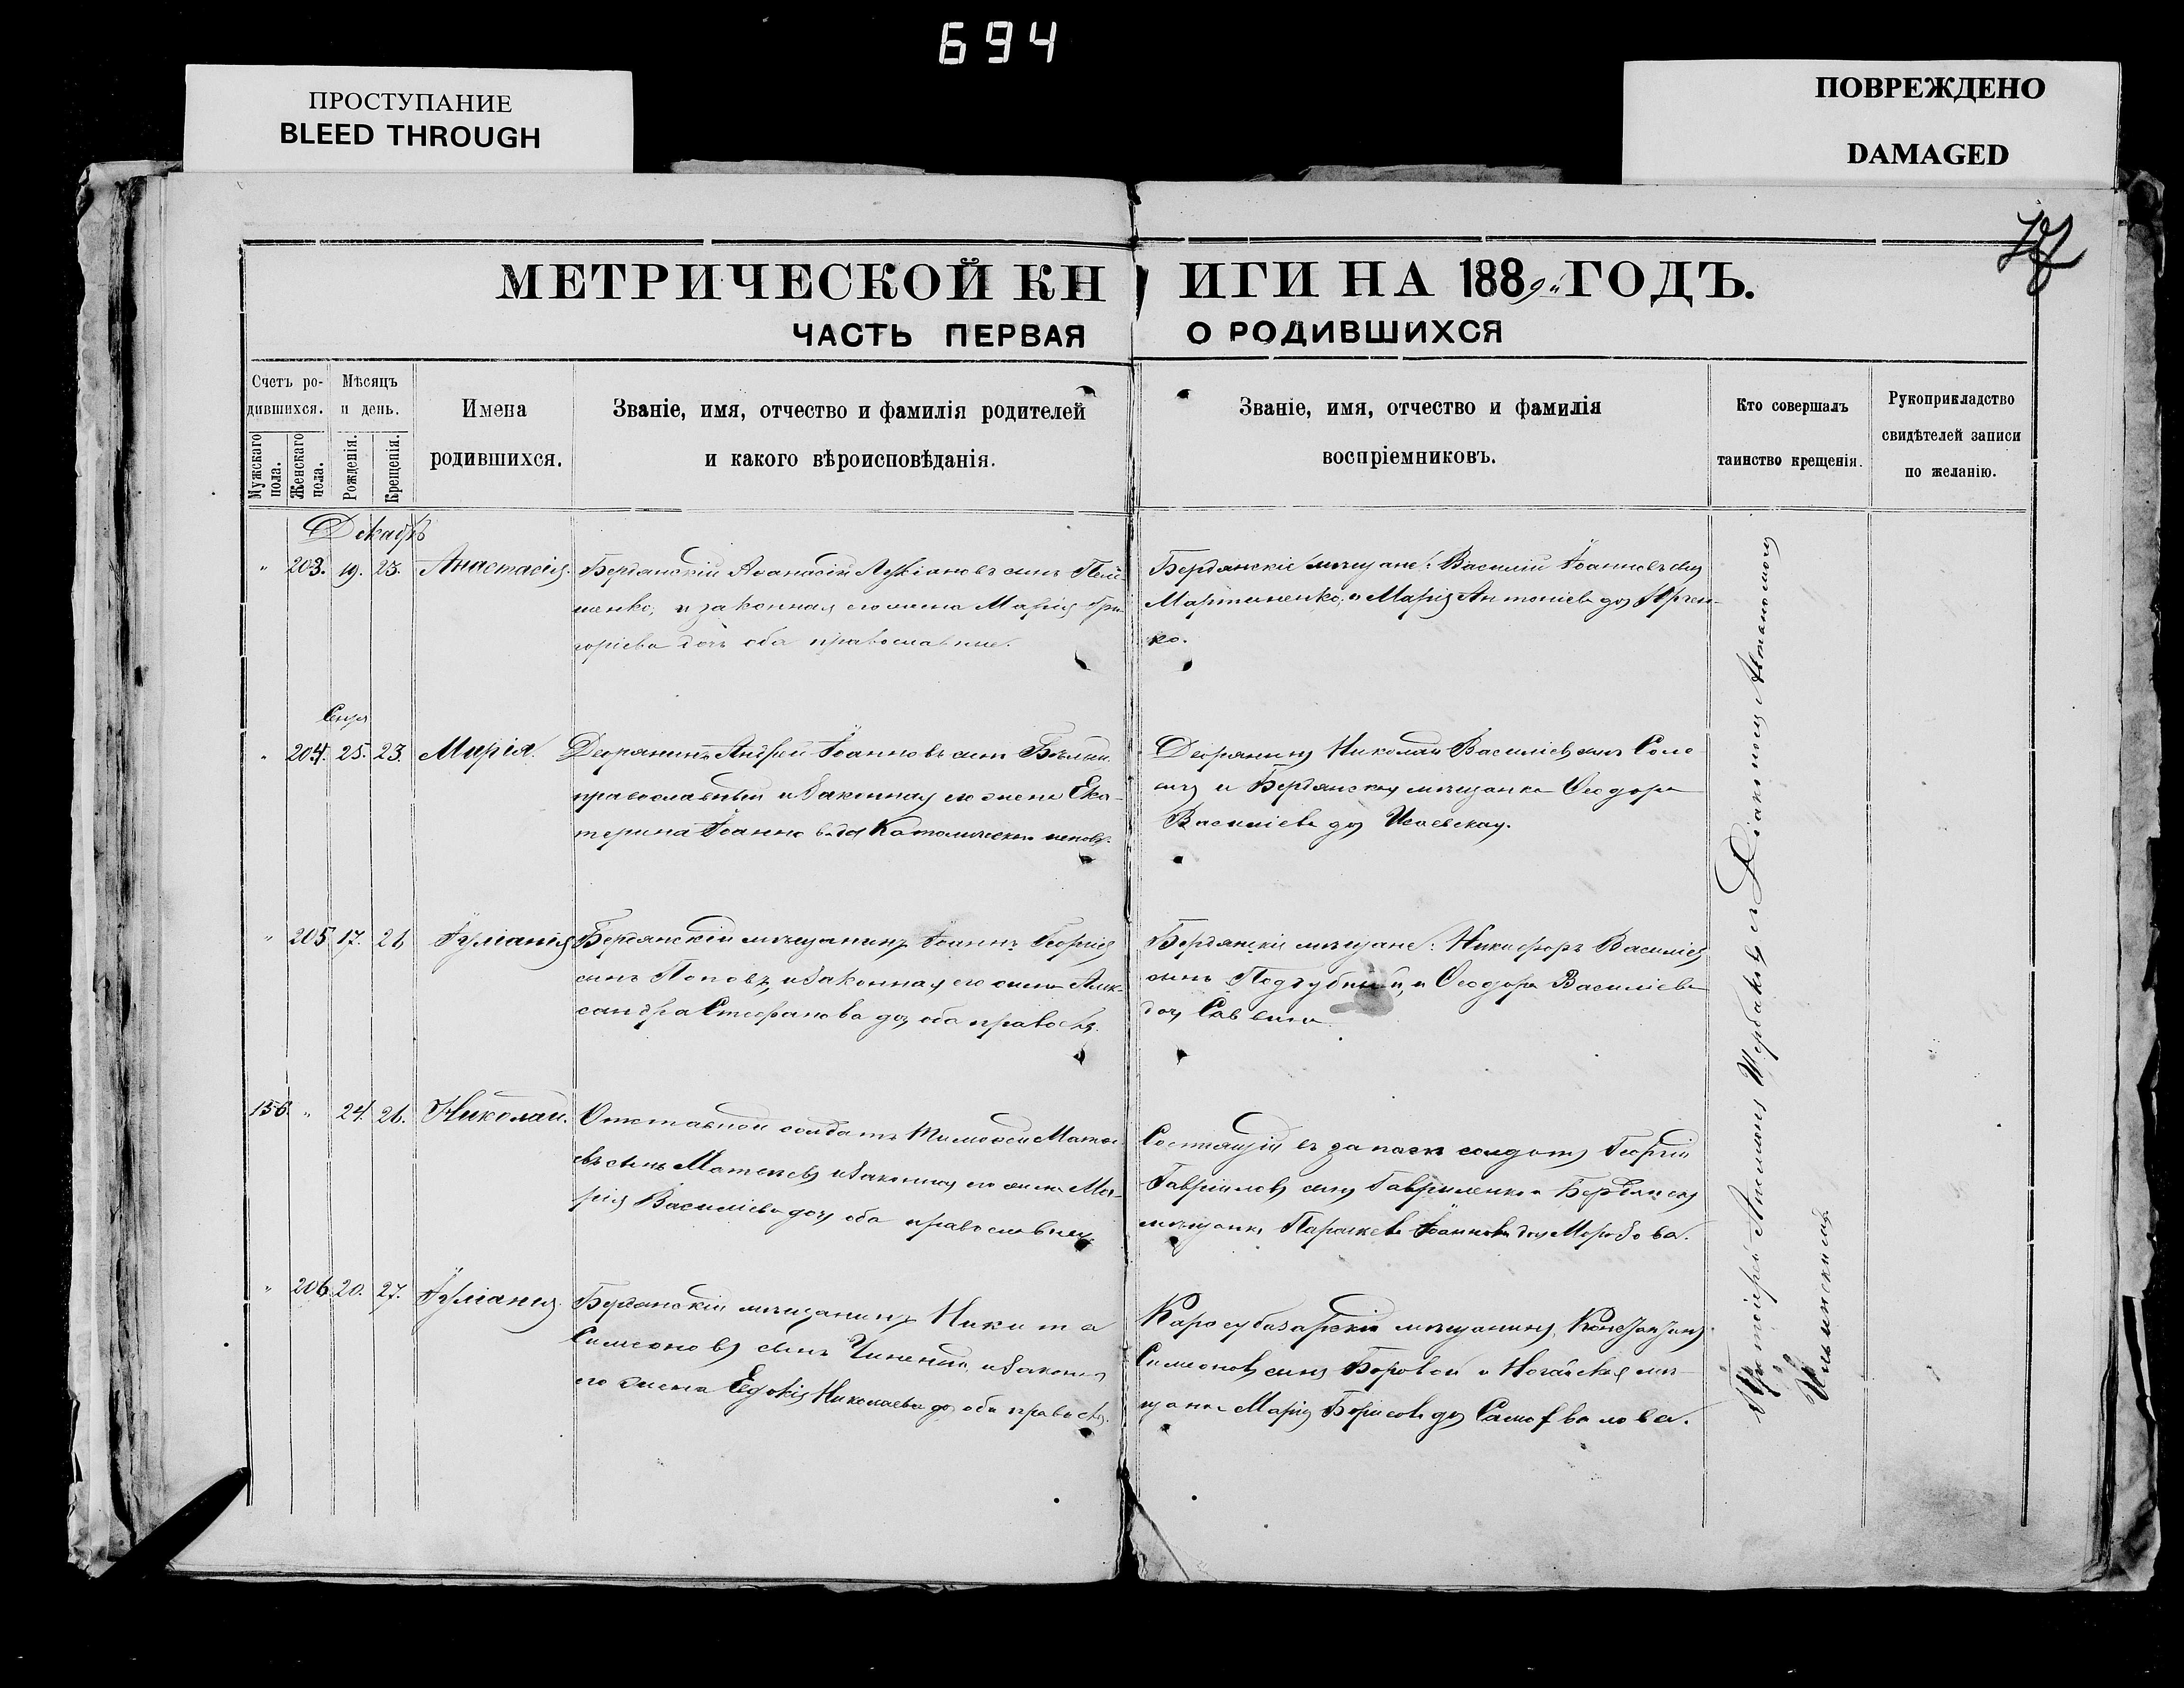 694
ПРОСТУПАНИЕ
BLEED THROUGH
ПОВРЕЖДЕНО
DAMAGED
МЕТРИЧЕСКОЙ КНИГИ НА 1889 ГОДЪ.
ЧАСТЬ ПЕРВАЯ О РОДИВШИХСЯ
Счетъ ро-
дившихся.
Мужскаго пола.
Женскаго пола.
Мѣсяцъ
и день.
Рожденія.
Крещенія.
Имена
родившихся.
Званіе, имя, отчество и фамилія родителей
и какого вѣроисповѣданія.
Званіе, имя, отчество и фамилія
воспріемниковъ.
Кто совершалъ
таинство крещенія.
Рукоприкладство
свидѣтелей записи
по желанію.
Декабрь
" 203. 19. 23. Анастасія.
Бердянскій Аѳанасій Лукіановъ сынъ
и законная его жена Марія Гри-
горіева дочь оба православные.
Бердянскіе мѣщане: Василій Іоанновъ сын
Мартиненко, и Марія Антоніева доч
ко.
" 204. 25. 23. Марія.
Дворянинъ Андрей Іоанновъ сынъ
православный и законная его жена Ека-
терина Іоаннова Католическ.
Дворянинъ Николай Василіев сынъ Соло
и Бердянская мѣщанка Ѳеодора
Василіева доч Исаевская.
" 205 17. 26 Іуліанія
Бердянскій мѣщанинъ Іоаннъ Георгіев
сынъ Поповъ, и законная его жена Алек-
сандра Стефанова доч оба правосл.
Бердянскіе мѣщане: Никифоръ Василіев
сынъ Поддубный, и Ѳеодора Василіева
доч Саввина
156. " 24. 26. Николай.
Отставной солдатъ Тимоѳей Матѳе-
евъ сынъ Матвеевъ и законная его жена Ма-
рія Василіева доч оба православные
Состоящій въ запасѣ солдатъ Георгій
Гавріиловъ сынъ Гавриленко и Бердянская
мѣщанка Параскева Іоаннова доч Морозова.
" 206 20. 27. Іуліанія
Бердянскій мѣщанинъ Никита
Симеоновъ сынъ и законная
его жена Евдокія Николаева доч оба правосл.
Карасубазарскій мѣщанинъ Константинъ
Симеоновъ сынъ Боровой и Ногайская мѣ-
щанка Марія Борисова доч Самофвалова.
Протоіерей Щербаковъ съ Діакономъ